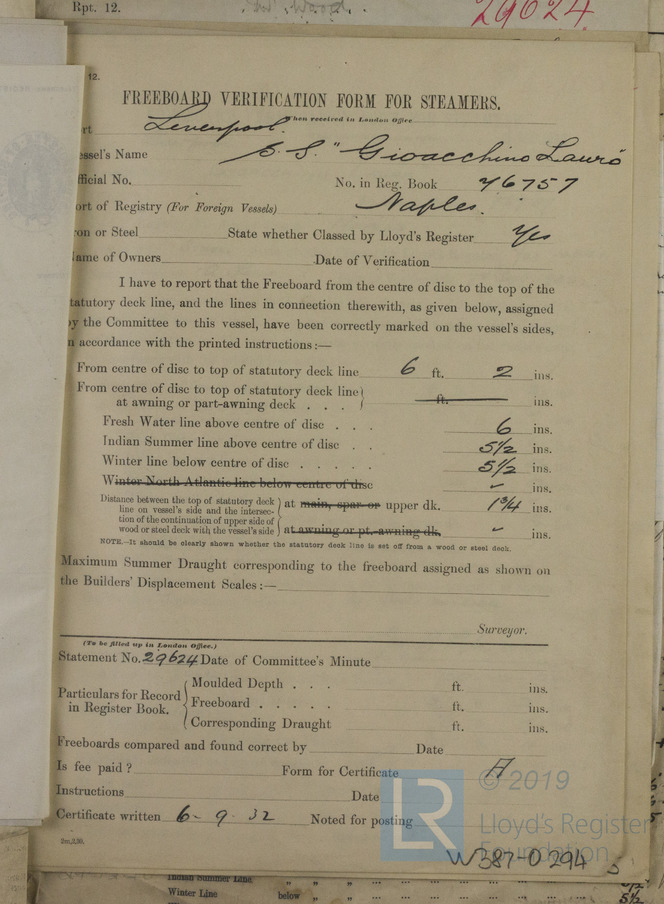 Rpt. 12.
29624
12.
FREEBOARD VERIFICATION FORM FOR STEAMERS.
When received in London Office
rt Liverpool.
essel's Name S.S. "Gioacchino Lauro
fficial No. No. in Reg. Book 76757
ort of Registry (For Foreign Vessels) Naples.
ron or Steel State whether Classed by Lloyd's Register Yes
ame of Owners Date of Verification
I have to report that the Freeboard from the centre of disc to the top of the
tatutory deck line, and the lines in connection therewith, as given below, assigned
y the Committee to this vessel, have been correctly marked on the vessel's sides,
n accordance with the printed instructions:—
From centre of disc to top of statutory deck line 6 ft. 2 ins.
From centre of disc to top of statutory deck line
at awning or part-awning deck . . . ft. ins.
Fresh Water line above centre of disc . . . 6 ins.
Indian Summer line above centre of disc . . 5½ ins.
Winter line below centre of disc . . . . . 5½ ins.
Winter North Atlantic line below centre of disc " ins.
Distance between the top of statutory deck
line on vessel's side and the intersec-
tion of the continuation of upper side of
wood or steel deck with the vessel's side
at main, spar or upper dk. 1¾ ins.
at awning or pt.-awning dk. " ins.
NOTE.—It should be clearly shown whether the statutory deck line is set off from a wood or steel deck.
Maximum Summer Draught corresponding to the freeboard assigned as shown on
the Builders' Displacement Scales:—
Surveyor.
(To be filled up in London Office.)
Statement No. 29624 Date of Committee's Minute
Particulars for Record
in Register Book.
Moulded Depth . . . ft. ins.
Freeboard . . . . . ft. ins.
Corresponding Draught ft. ins.
Freeboards compared and found correct by Date
Is fee paid? Form for Certificate A
Instructions Date
Certificate written 6-9-32 Noted for posting
2m,2,30.
LR
© 2019
Lloyd's Register
Foundation
W387-0294
Indian Summer Line " " "
Winter Line below " " 5½